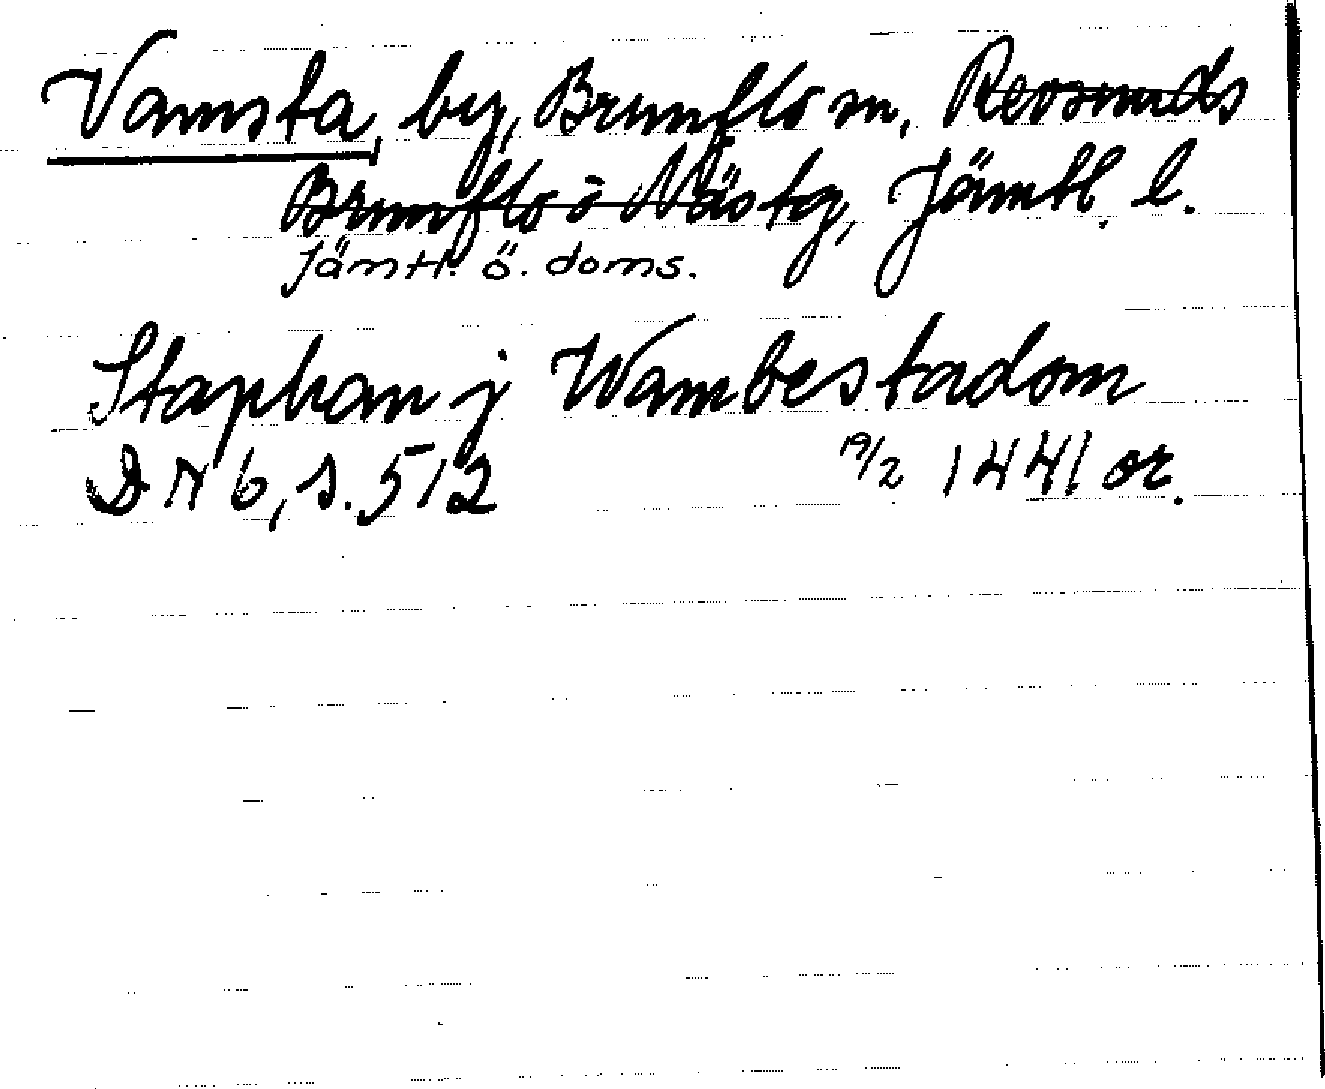 Vamsta, by, Brunflo sn, Revsunds
Brunflo o Näs tg, Jämtl. l.
Jämtl. ö. doms.
Staphan j Wambestadom
DN 6, s. 512 19/2 1441 or.